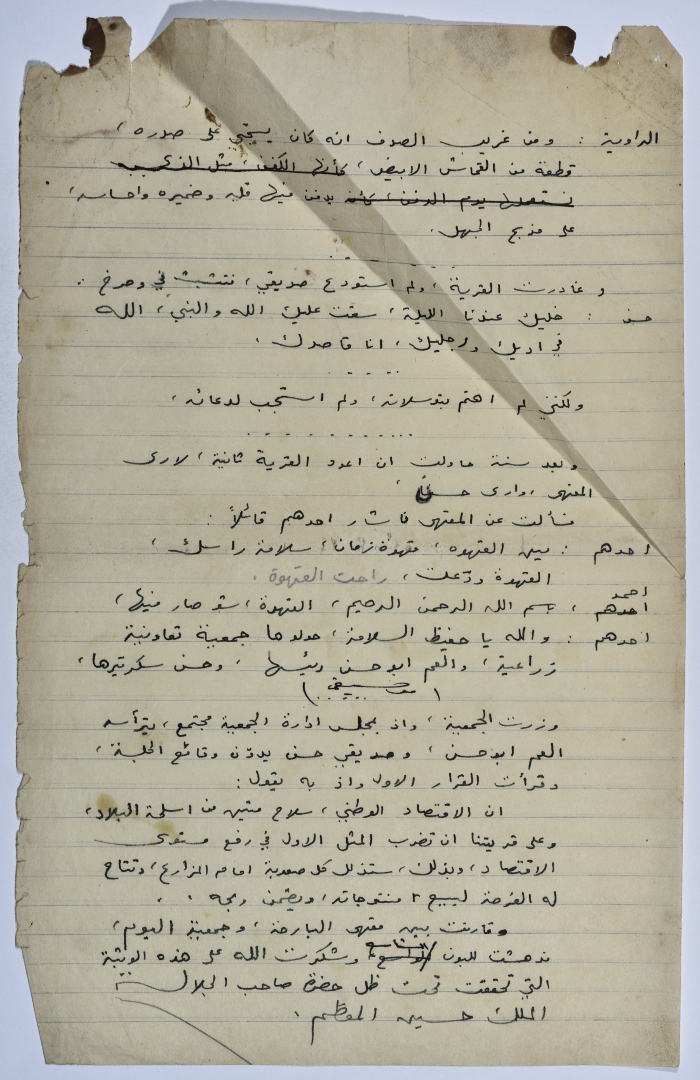 الراوية : ومن غريب الصدف انه كان يخبي على صدره ،
قطعة من القماش الابيض ، كأنها الكفن ، مثل الذي
نستعملها يوم الدفن ، كأنه يدفن فيها قلبه وضميره واحساسه ،
على مذبح الجهل .
. . . . . .
وغادرت القرية ، ولم استودع صديقي ، فتشبث في وصرخ :
حسن : خليك عندنا الليلة ، سقت عليك الله والنبي ، الله
في اديك ورجليك ، انا قاصدك .
. . . . .
ولكنني لم اهتم بتوسلاته ، ولم استجب لدعائه ،
. . . . . . . . . . . .
وبعد سنة حاولت ان اعود القرية ثانية ، لارى
المقهى ، وارى حسناً ،
فسألت عن المقهى فاشار احدهم قائلاً :
احدهم : مين القهوه ، قهوة زمان ، سلامة راسك ،
القهوة ودّعت ، راحت القهوة .
احمد
احدهم ، بسم الله الرحمن الرحيم ، القهوة ، شو صار فيها ،
احدهم : والله يا حفيظ السلامة ، حولوها جمعية تعاونية
زراعية ، والعم ابو حسن رئيسها ، وحسن سكرتيرها ،
( موسيقى )
وزرت الجمعية ، واذ بمجلس ادارة الجمعية مجتمع ، يترأسه
العم ابو حسن ، وصديقي حسن يدوّن وقائع الجلسة ،
وقرأت القرار الاول واذ به يقول :
ان الاقتصاد الوطني ، سلاح متين من اسلحة البلاد ،
وعلى قريتنا ان تضرب المثل الاول في رفع مستوى
الاقتصاد ، وبذلك ، ستذلل كل صعوبة امام المزارع ، وتتاح
له الفرصة لبيع منتوجاته ، ويضمن ربحه .
وقارنت بين مقهى البارحة ، وجمعية اليوم ،
فدهشت للبون الشاسع ، وشكرت الله على هذه الوثبة
التي تحققت تحت ظل حضرة صاحب الجلالة
الملك حسين المعظم .